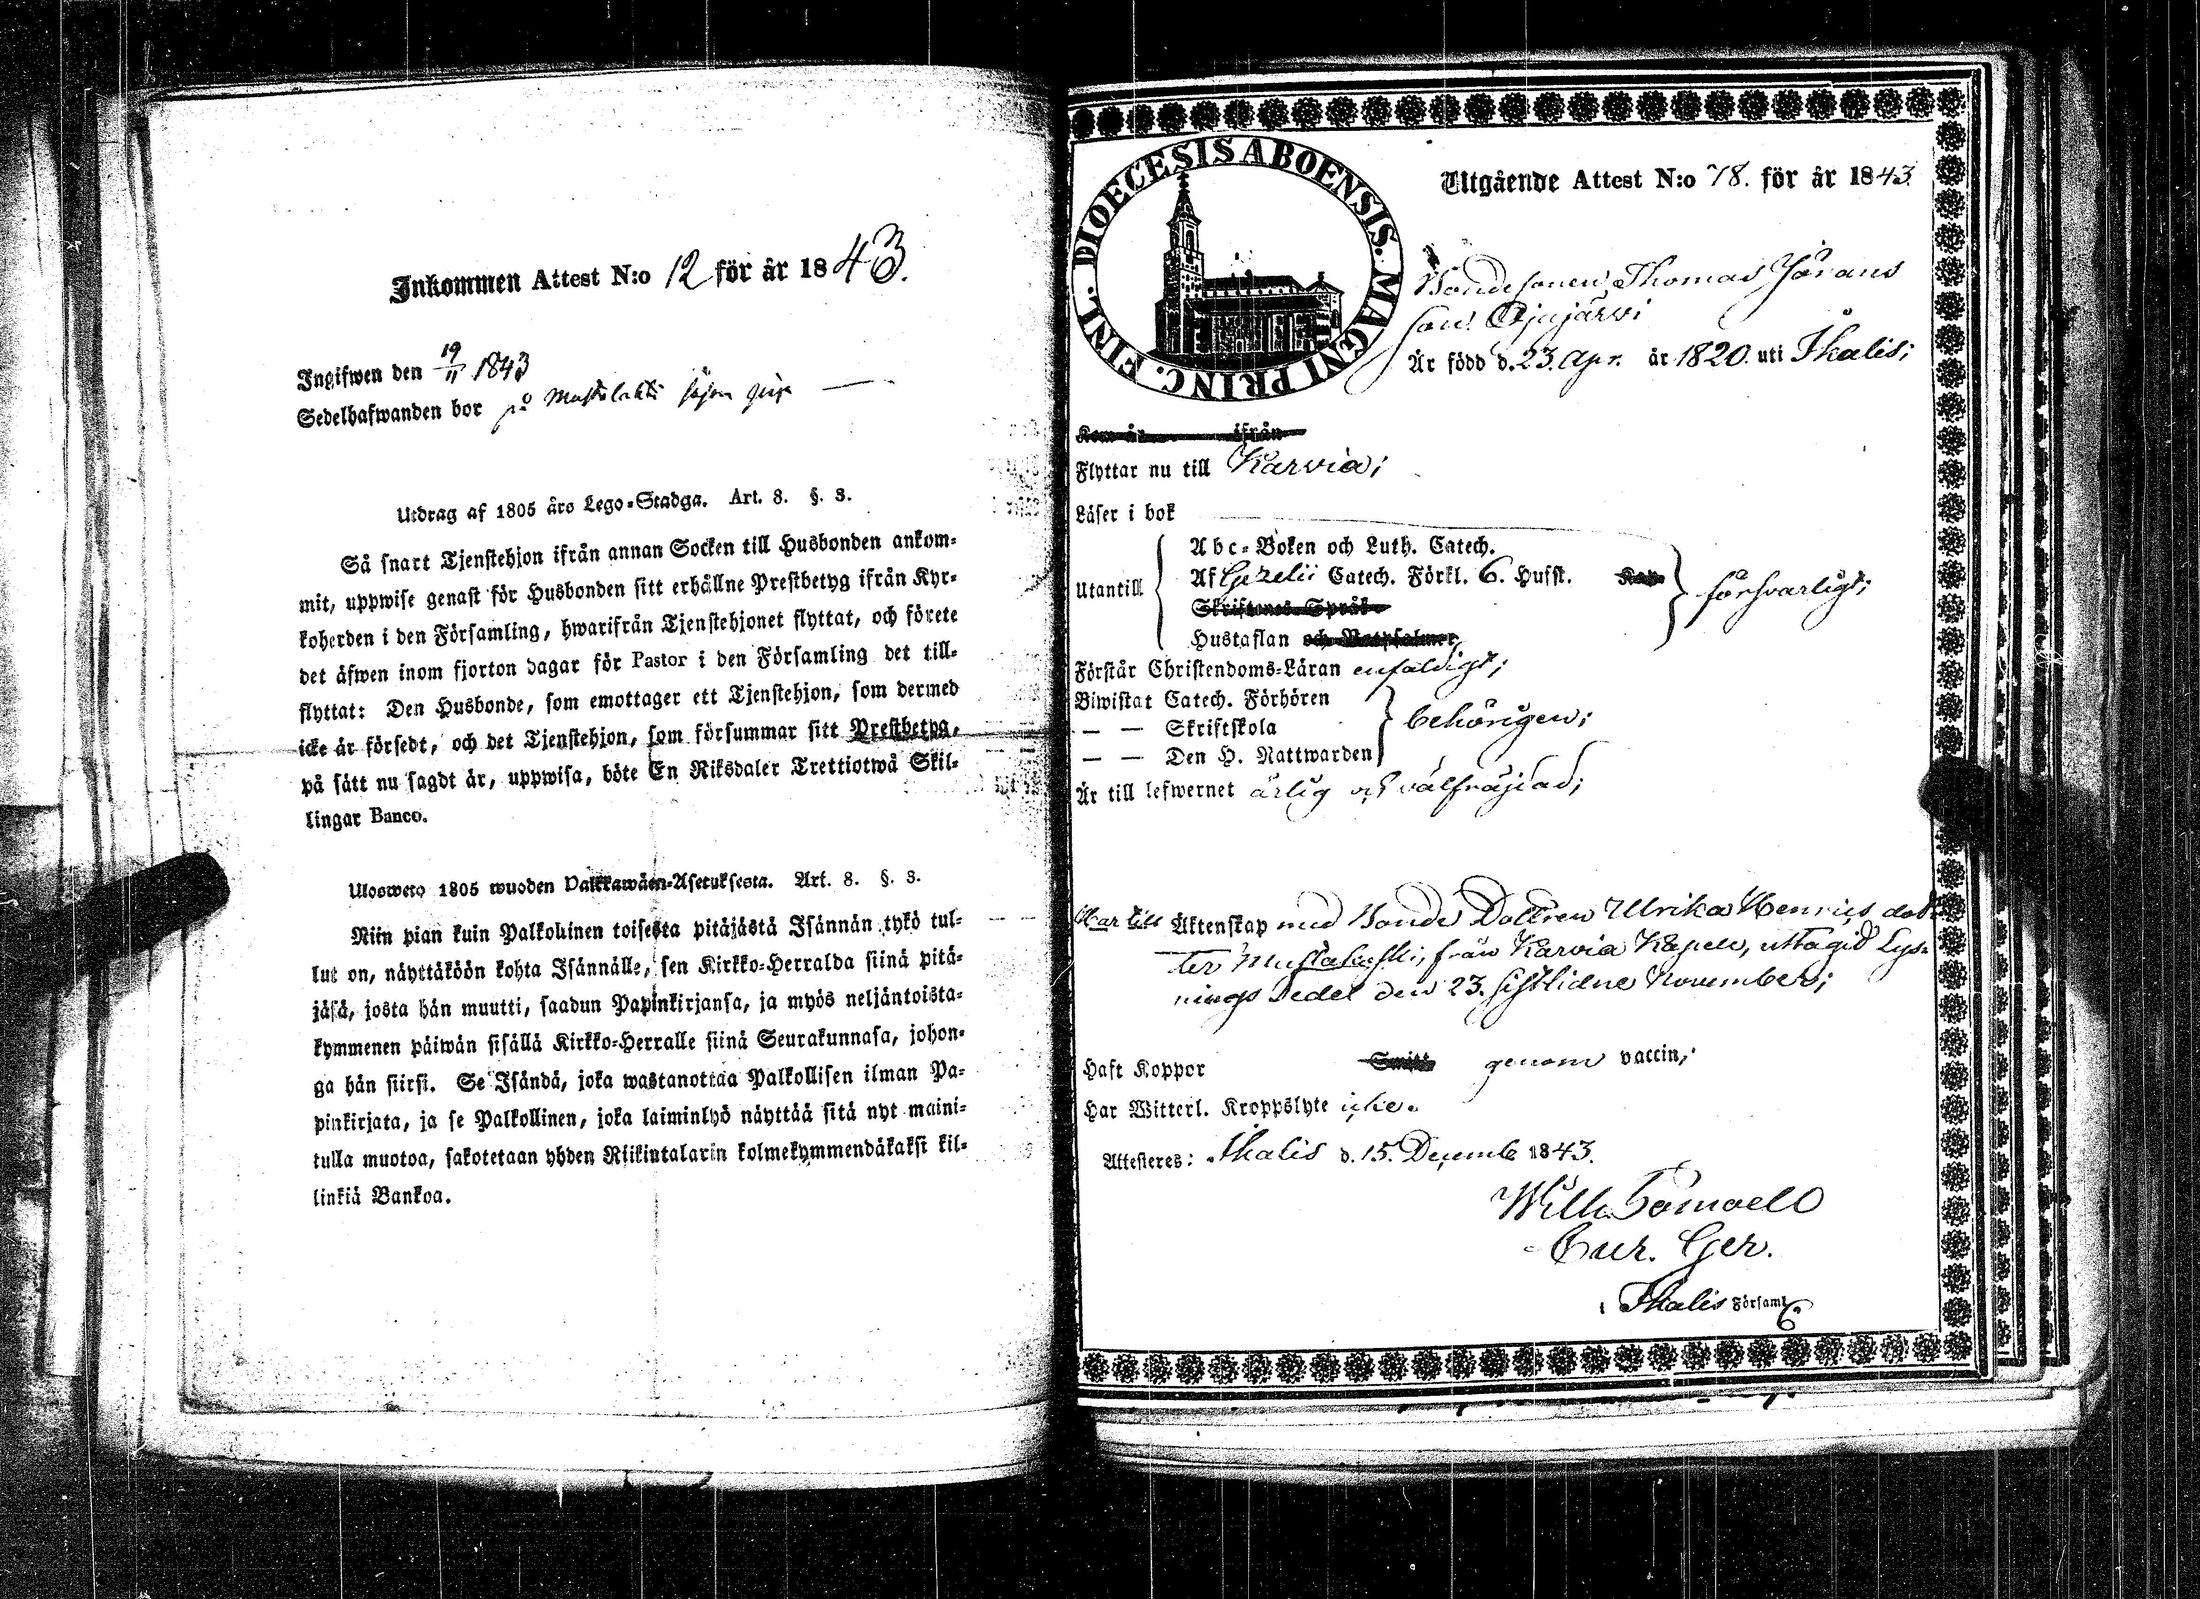 Inkommen Attest N:o 12 för år 1843.
Ingifwen den 19/11 1843
Sedelhafwanden bor på
Utdrag af 1805 års Lego-Stadga. Art. 8. §. 3.
Så snart Tjenstehjon ifrån annan Socken till Husbonden ankom-
mit, uppwise genast för Husbonden sitt erhållne Prestbetyg ifrån Kyr-
koherden i den Församling, hwarifrån Tjenstehjonet flyttat, och förete
det äfwen inom fjorton dagar för Pastor i den Församling det till-
flyttat: Den Husbonde, som emottager ett Tjenstehjon, som dermed
icke är försedt, och det Tjenstehjon, som försummar sitt Prestbetyg,
på sätt nu sagdt är, uppwisa, böte En Riksdaler Trettiotwå Skil-
lingar Banco.
Ulosweto 1805 wuoden Palkkawäen-Asetuksesta. Art. 8. §. 3.
Niin pian kuin Palkolinen toisesta pitäjästä Isännän tykö tul-
lut on, näyttäköön kohta Isännälle, sen Kirkko-Herralda siinä pitä-
jäsä, josta hän muutti, saadun Papinkirjansa, ja myös neljäntoista-
kymmenen päiwän sisällä Kirkko-Herralle siinä Seurakunnasa, johon-
ga hän siirsi. Se Isändä, joka wastanottaa Palkollisen ilman Pa-
pinkirjata, ja se Palkollinen, joka laiminlyö näyttää sitä nyt maini-
tulla muotoa, sakotetaan yhden Riikintalarin kolmekymmendäkaksi kil-
linkiä Bankoa.
DIOECESIS ABOENSIS. MAGNI PRINC. FINL.
Utgående Attest N:o 78. för år 1843
Bondesonen Thomas Jörans
son Ojajärvi
Är född d. 23. Apr. år 1820. uti Ikalis;
Kom år ifrån
Flyttar nu till Karvia;
Läser i bok
Abc-Boken och Luth. Catech.
Utantill Af Gezelii Catech. Förkl. 6. Hufst. Kap. försvarligt;
Skriftenes Språk
Hustaflan och Botpsalmer
Förstår Christendoms-Läran enfaldigt;
Biwistat Catech. Förhören
— — Skriftskola behörigen;
— — Den H. Nattwarden
Är till lefwernet ärlig och välfräjdad;
Har till Äktenskap med Bonde Dottren Ulrika Henrics dot-
ter från Karvia Kapell, uttagit Lys-
nings Sedel den 23. sistlidne November;
Haft Koppor genom vaccin;
Har Witterl. Kroppslyte icke.
Attesteras: Ikalis d. 15. Decemb 1843.
Ikalis Församl